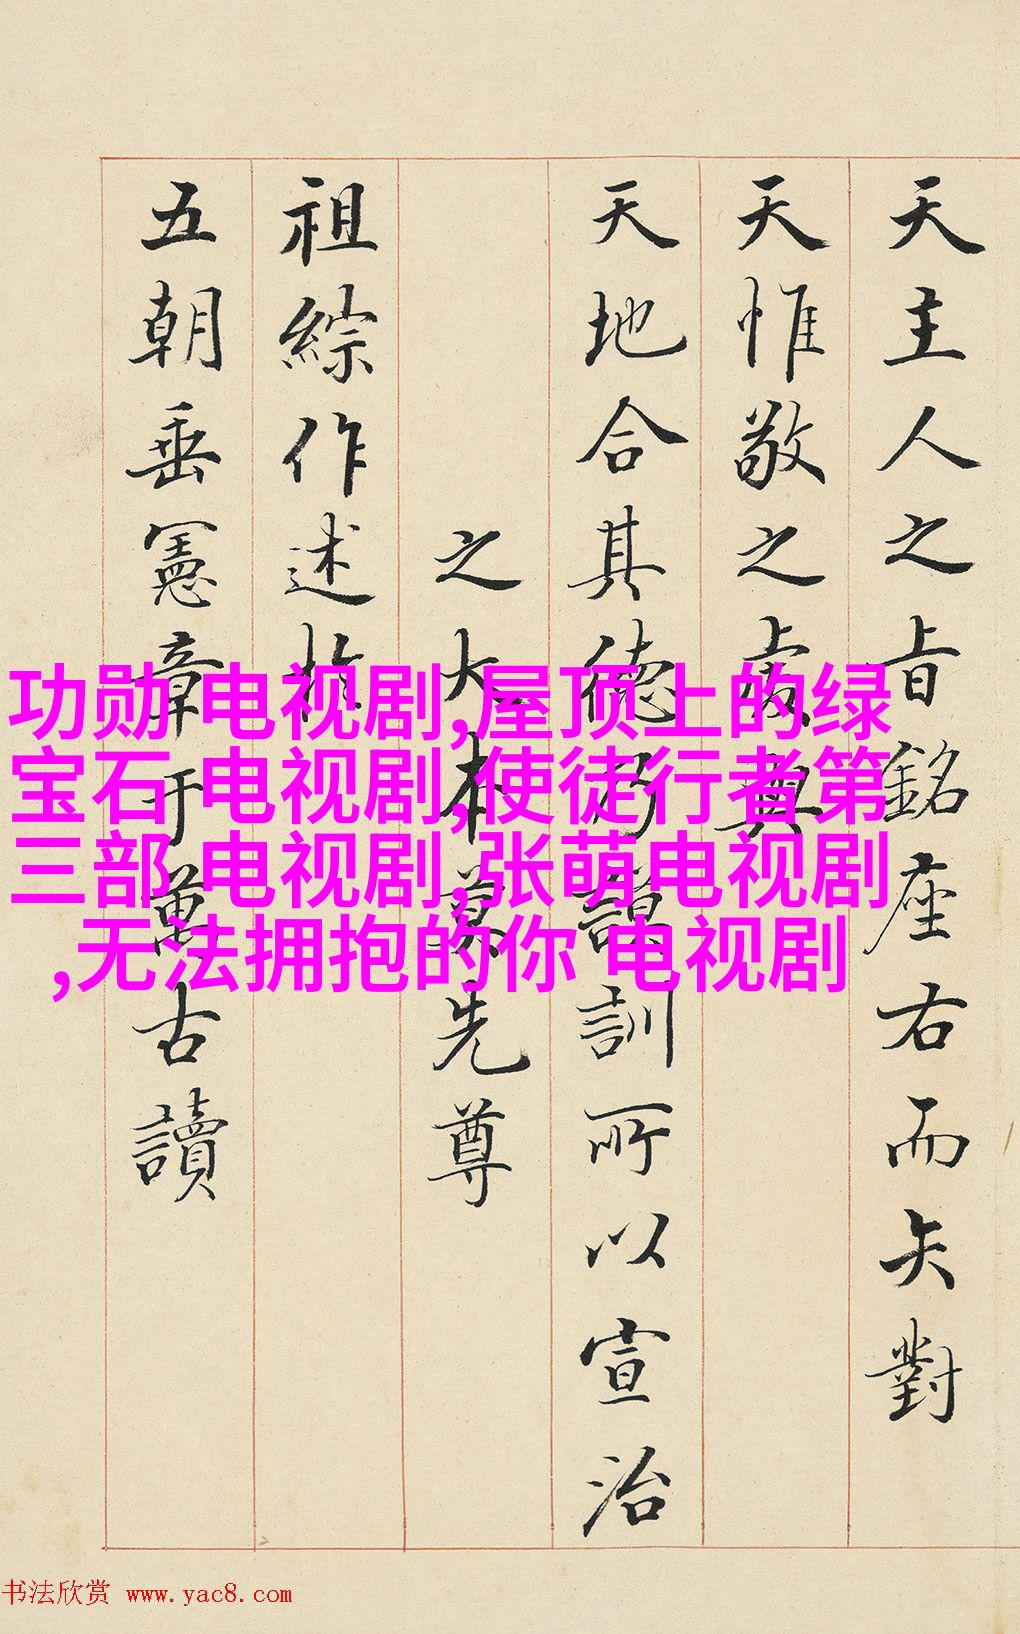 天主人之旨銘座右而矢對
天惟敬之處與
天地合其德乃謨訓所以宣治
之大本莫先尊
祖綜作述於
五朝垂憲章于萬古讀
功勋 电视剧,屋顶上的绿
宝石 电视剧,使徒行者第
三部 电视剧,张萌电视剧
,无法拥抱的你 电视剧
书法欣赏 www.yac8.com